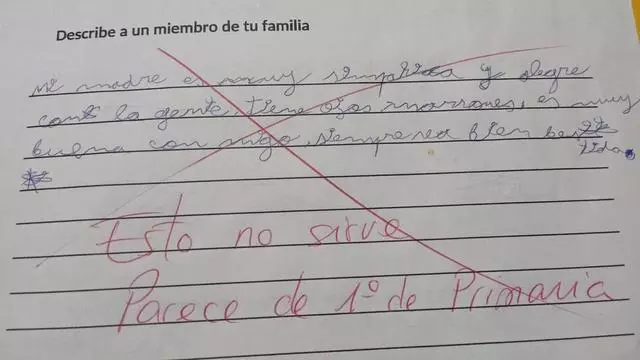 Describe a un miembro de tu familia
mi madre es muy simpatica y alegre
con la gente, tiene ojos marrones, es muy
buena con migo, siempre va bien bes
tida.
Esto no sirve
Parece de 1º de Primaria